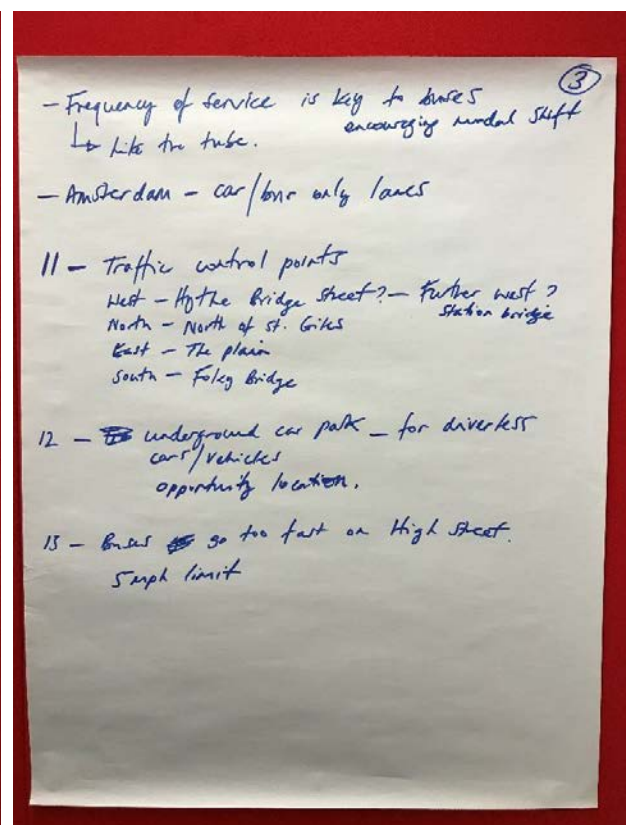 ③
- Frequency of service is key to buses
encouraging modal shift
↳ Like the tube.
- Amsterdam - car/bus only lanes
11 - Traffic control points
West - Hythe Bridge Street? - Further west?
Station bridge
North - North of St. Giles
East - The plain
South - Foley Bridge
12 - underground car park - for driverless
cars/vehicles
opportunity location.
13 - Buses go too fast on High Street.
5 mph limit